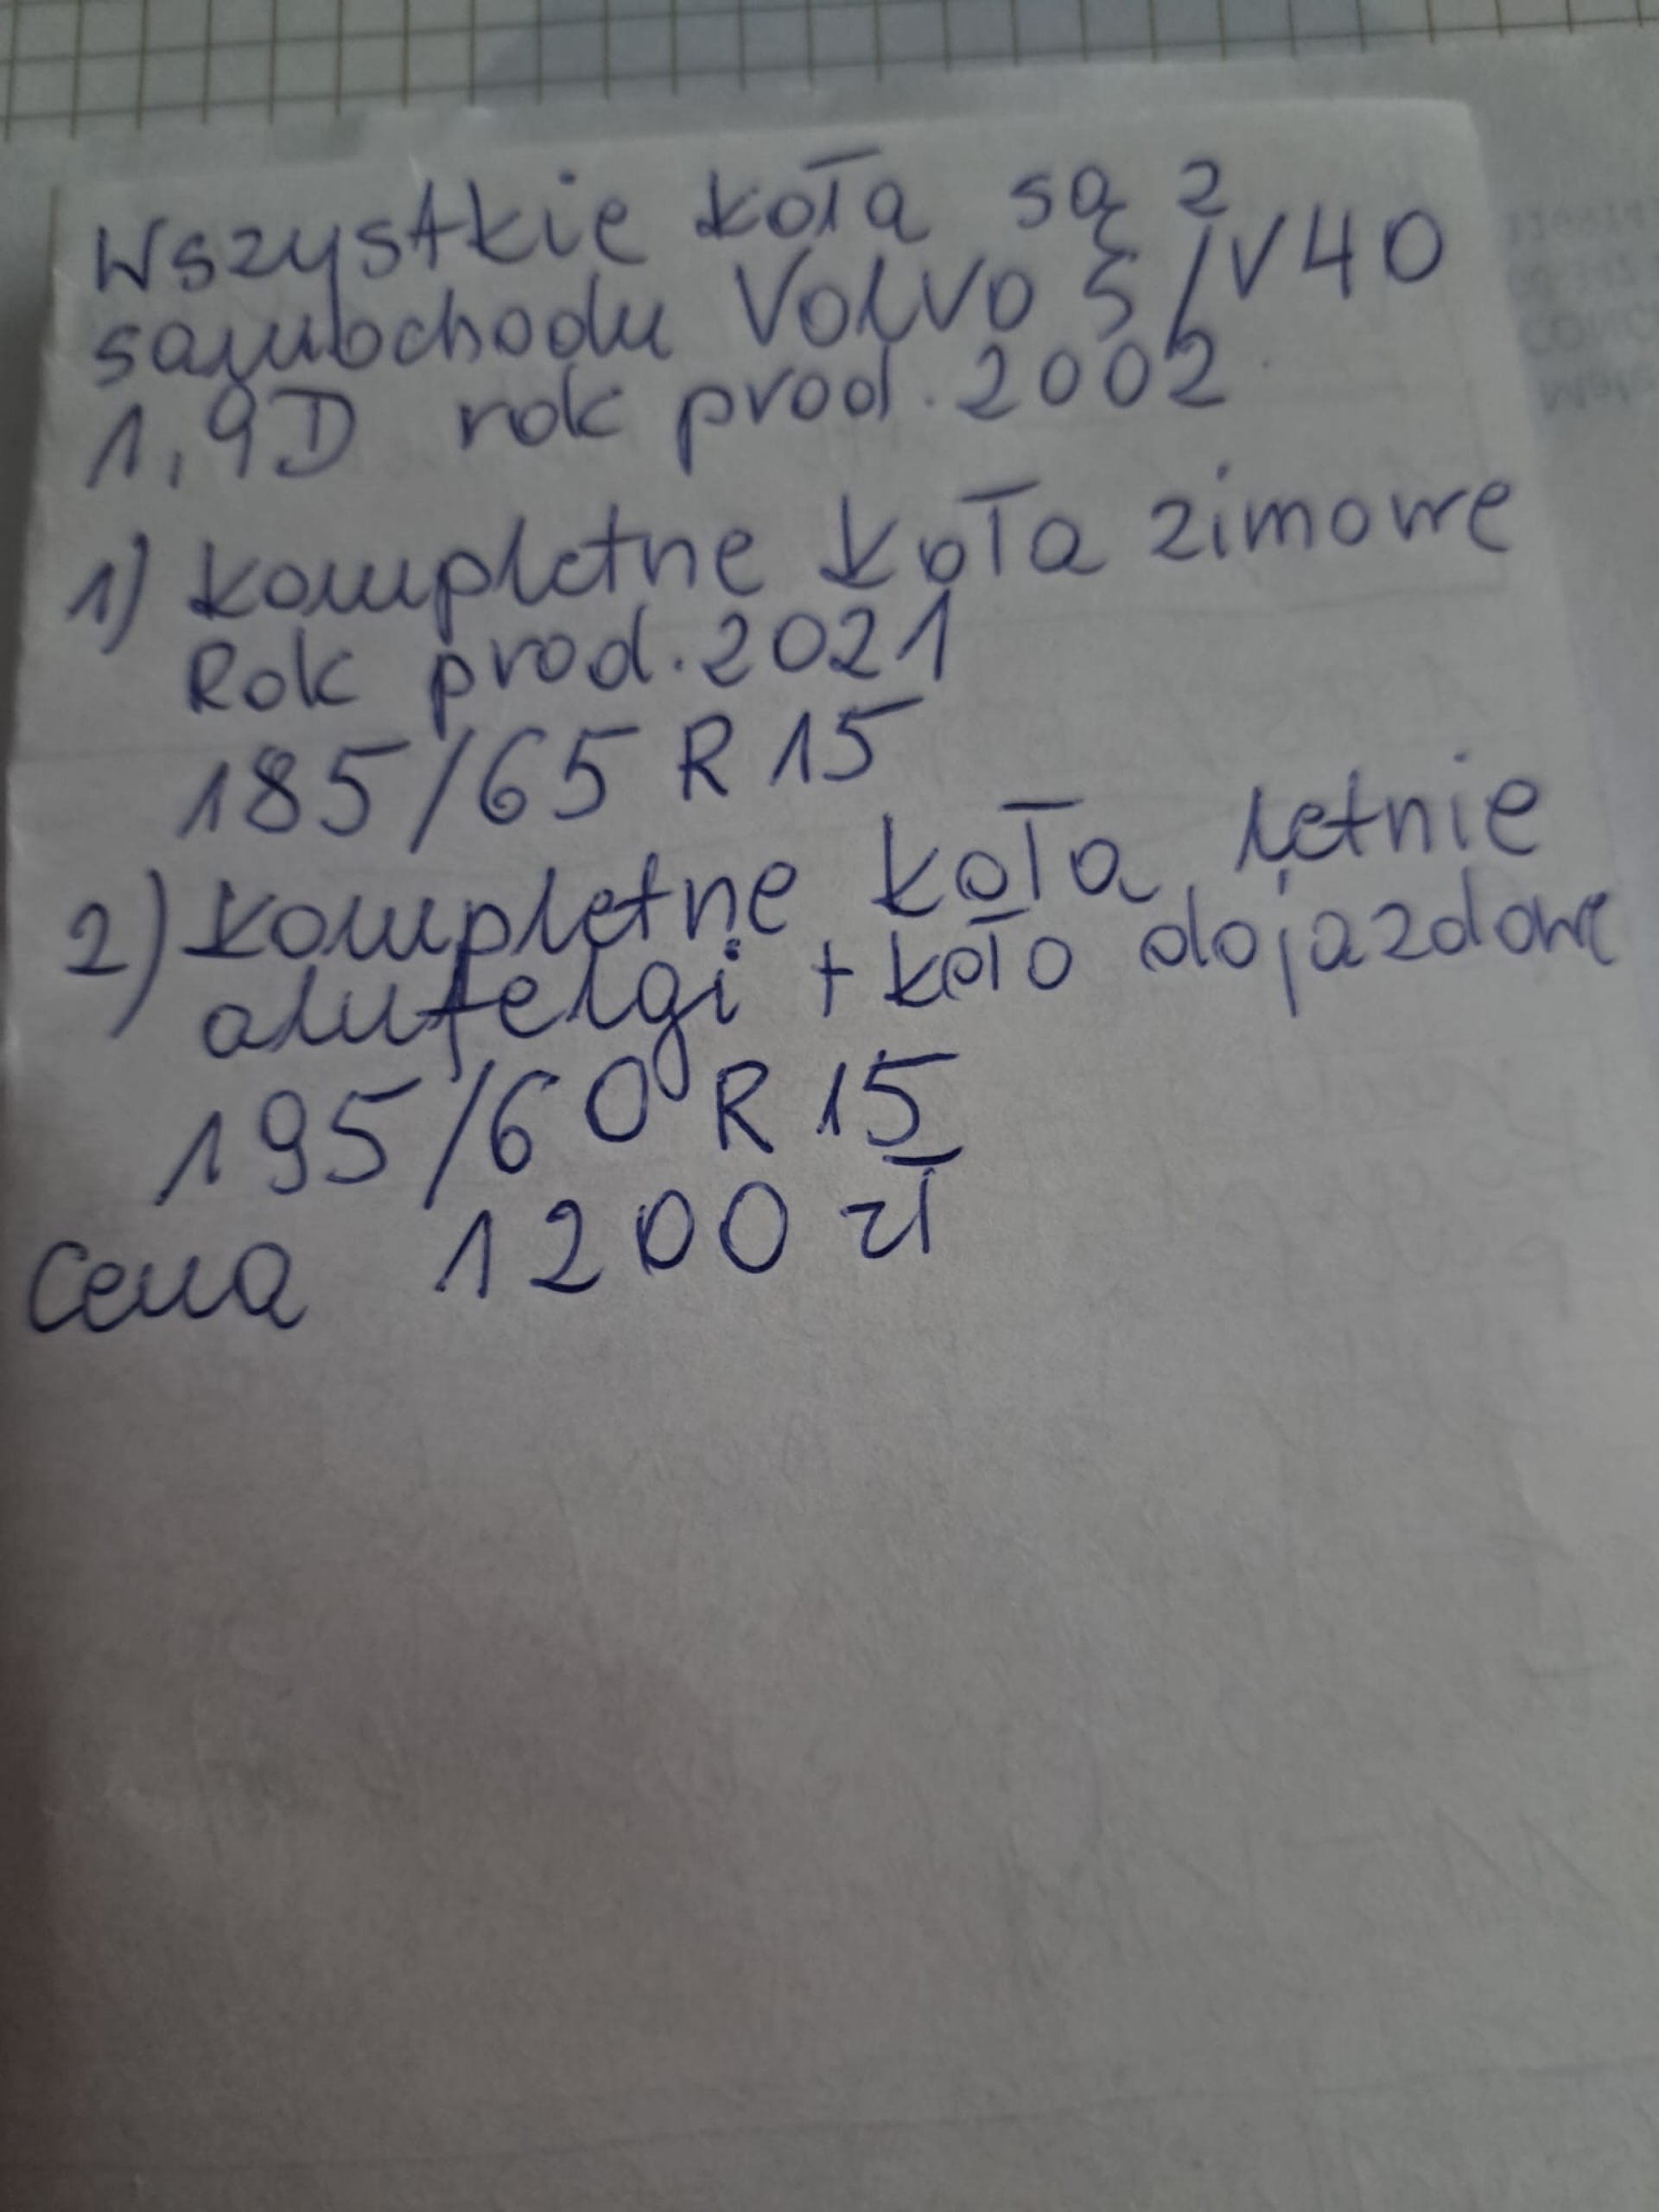 Wszystkie koła są z
samochodu Volvo S/V40
1,9D rok prod. 2002
1) Kompletne koła zimowe
Rok prod. 2021
185/65 R 15
2) Kompletne koła letnie
alufelgi + koło dojazdowe
195/60 R 15
Cena 1200 zł